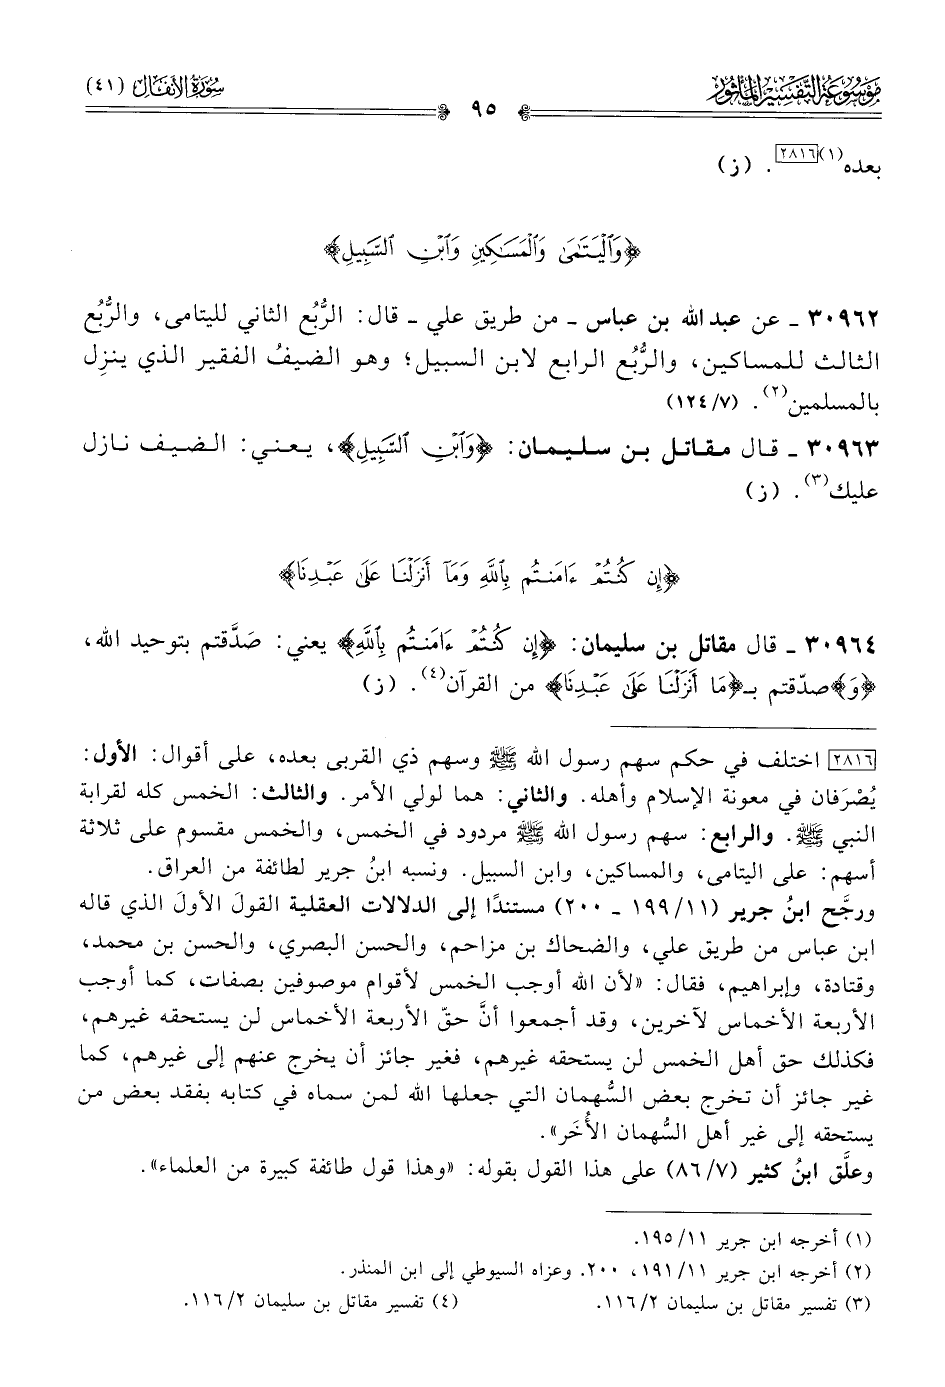 موسوعة التفسير المأثور
٩٥
سورة الأنفال (٤١)
بعده(١)[٢٨١٦]. (ز)
﴿وَٱلۡيَتَٰمَىٰ وَٱلۡمَسَٰكِينِ وَٱبۡنِ ٱلسَّبِيلِ﴾
٣٠٩٦٢ ـ عن عبد الله بن عباس ـ من طريق علي ـ قال: الرُّبُع الثاني لليتامى، والرُّبُع
الثالث للمساكين، والرُّبُع الرابع لابن السبيل؛ وهو الضيفُ الفقير الذي ينزِل
بالمسلمين(٢). (١٢٤/٧)
٣٠٩٦٣ ـ قال مقاتل بن سليمان: ﴿وَٱبۡنِ ٱلسَّبِيلِ﴾، يعني: الضيف نازل
عليك(٣). (ز)
﴿إِن كُنتُمۡ ءَامَنتُم بِٱللَّهِ وَمَآ أَنزَلۡنَا عَلَىٰ عَبۡدِنَا﴾
٣٠٩٦٤ ـ قال مقاتل بن سليمان: ﴿إِن كُنتُمۡ ءَامَنتُم بِٱللَّهِ﴾ يعني: صَدَّقتم بتوحيد الله،
﴿وَ﴾صدّقتم بـ﴿مَا أَنزَلۡنَا عَلَىٰ عَبۡدِنَا﴾ من القرآن(٤). (ز)
[٢٨١٦] اختلف في حكم سهم رسول الله ﷺ وسهم ذي القربى بعده، على أقوال: الأول:
يُصْرَفان في معونة الإسلام وأهله. والثاني: هما لولي الأمر. والثالث: الخمس كله لقرابة
النبي ﷺ. والرابع: سهم رسول الله ﷺ مردود في الخمس، والخمس مقسوم على ثلاثة
أسهم: على اليتامى، والمساكين، وابن السبيل. ونسبه ابنُ جرير لطائفة من العراق.
ورجَّح ابنُ جرير (١٩٩/١١ ـ ٢٠٠) مستندًا إلى الدلالات العقلية القولَ الأولَ الذي قاله
ابن عباس من طريق علي، والضحاك بن مزاحم، والحسن البصري، والحسن بن محمد،
وقتادة، وإبراهيم، فقال: «لأن الله أوجب الخمس لأقوام موصوفين بصفات، كما أوجب
الأربعة الأخماس لآخرين، وقد أجمعوا أنَّ حقّ الأربعة الأخماس لن يستحقه غيرهم،
فكذلك حق أهل الخمس لن يستحقه غيرهم، فغير جائز أن يخرج عنهم إلى غيرهم، كما
غير جائز أن تخرج بعض السُّهمان التي جعلها الله لمن سماه في كتابه بفقد بعض من
يستحقه إلى غير أهل السُّهمان الأُخَر».
وعلَّق ابنُ كثير (٨٦/٧) على هذا القول بقوله: «وهذا قول طائفة كبيرة من العلماء».
(١) أخرجه ابن جرير ١٩٥/١١.
(٢) أخرجه ابن جرير ١٩١/١١، ٢٠٠. وعزاه السيوطي إلى ابن المنذر.
(٣) تفسير مقاتل بن سليمان ١١٦/٢. (٤) تفسير مقاتل بن سليمان ١١٦/٢.